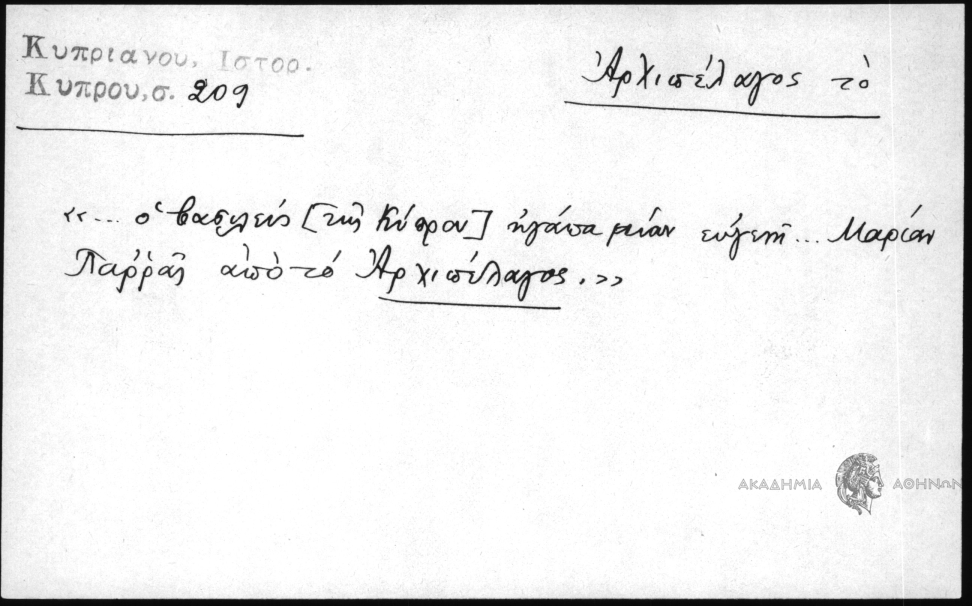 Κυπριανου, Ιστορ.
Κυπρου, σ. 209
Ἀρχιπέλαγος τὸ
«... ὁ βασιλεύς [τῆς Κύπρου] ἠγάπα μίαν εὐγενῆ ... Μαρίαν
ἀπὸ τό Ἀρχιπέλαγος.»
ΑΚΑΔΗΜΙΑ ΑΘΗΝΩΝ